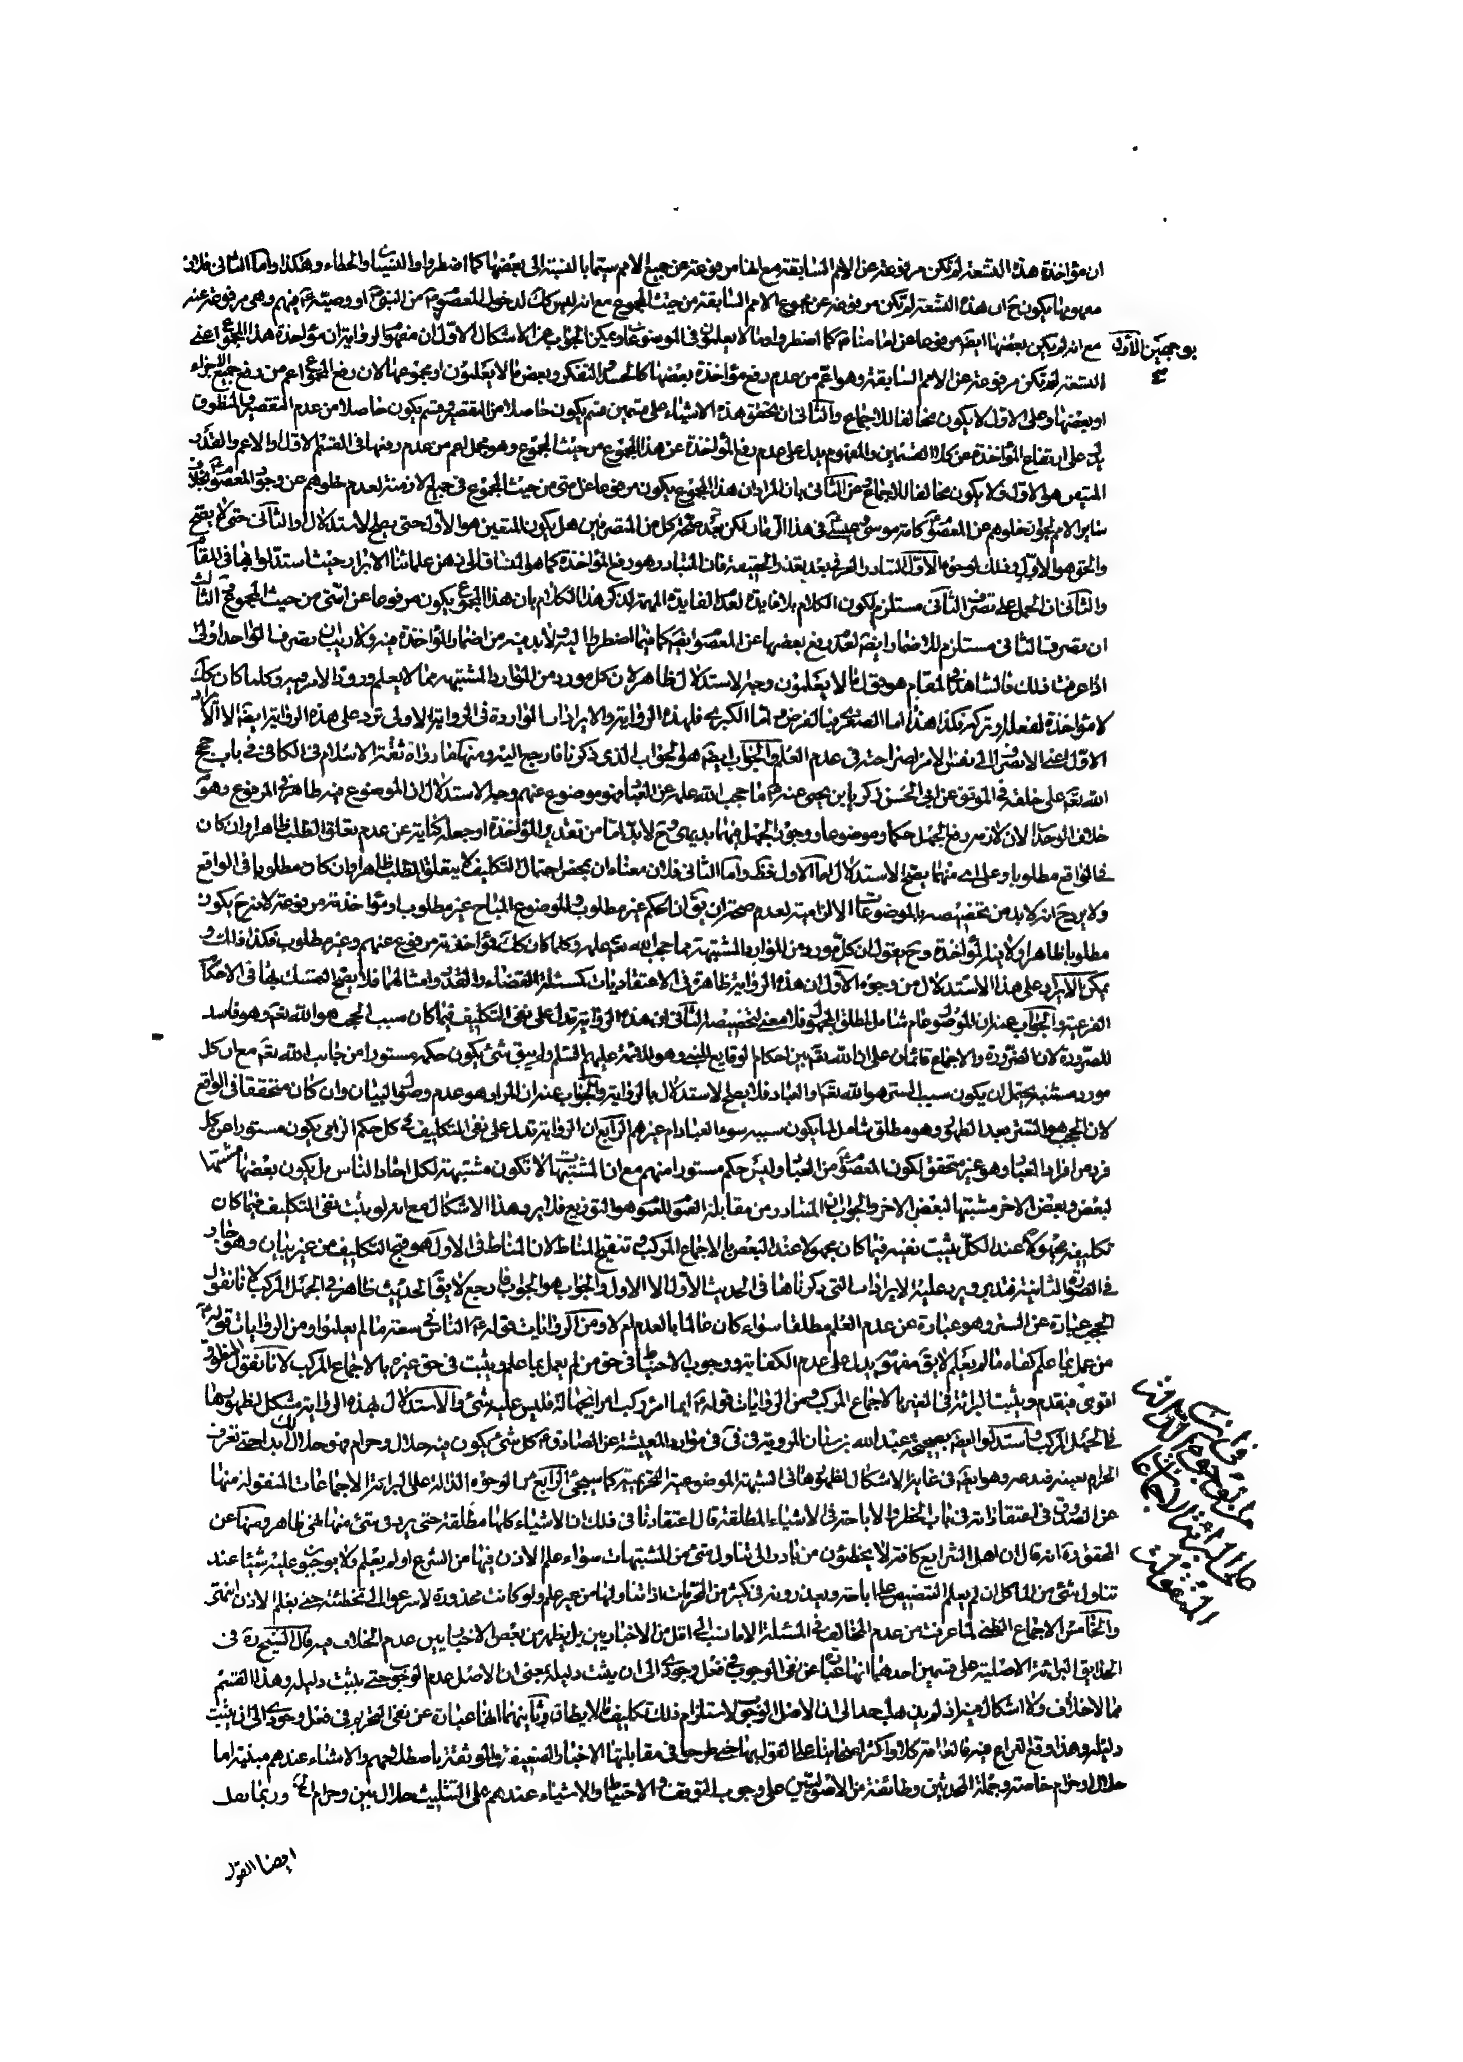 ان مؤاخذة هذه التسعة لم تكن مرفوعة عن الامم السابقة مع انها مرفوعة عن جميع الامم سيما بالنسبة الى بعضها كما اضطروا والنسيان والخطاء وهكذا واما الثانى فلان
مفهومها يكون ح ان هذه التسعة لم تكن مرفوعة عن مجموع الامم السابقة من حيث المجموع مع انه ليس كك لدخول المعصوم من النبى او وصيه فيهم وهى مرفوعة عنه
بوجهين الاول
مع انه لم يكن بعضها ايضا مرفوعا عن امامنا كما اضطروا وما لا يعلمون فى الموضوعات ويمكن الجواب عن الاشكال الاول ان مفهوم الرواية ان مؤاخذة هذا المجموع اعنى
التسعة لم تكن مرفوعة عن الامم السابقة وهو اعم من عدم رفع مؤاخذة بعضها كالحسد والتفكر وبعض ما لا يعلمون او مجموعها لان رفع المجموع اعم من رفع جميع الاجزاء
او بعضها وعلى الاول لا يكون مخالفا للاجماع والثانى ان تحقق هذه الاشياء على قسمين قسم يكون حاصلا من التقصير وقسم يكون حاصلا من عدم التقصير والمنطوق
يدل على ارتفاع المؤاخذة عن كلا القسمين والمفهوم يدل على عدم رفع المؤاخذة عن هذا المجموع من حيث المجموع وهو مجمل اعم من عدم رفعها فى القسم الاول او الاعم والقدر
المتيقن هو الاول فلا يكون مخالفا للاجماع وعن الثانى بان المراد ان هذا المجموع يكون مرفوعا عن امتى من حيث المجموع فى جميع الازمنة لعدم خلوهم عن وجود المعصوم بخلاف
ساير الامم لجواز خلوهم عن المعصوم كامة موسى وعيسى فى هذا الزمان لكن بعد صحة كل من التصرفين هل يكون المتعين هو الاول حتى يصح الاستدلال او الثانى حتى لا يصح
والحق هو الاول وذلك لوجوه الاول التبادر العرفى بعد تعذر الحقيقة فان المتبادر هو رفع المؤاخذة كما هو المنساق الى ذهن علمائنا الابرار حيث استدلوا بها فى المقام
والثانى ان الحمل على تصرف الثانى مستلزم لكون الكلام بلا فايدة لعدم الفايدة المهمة لذكر هذا الكلام بان هذا المجموع يكون مرفوعا عن امتى من حيث المجموع الثالث
ان تصرف الثانى مستلزم للاضمار ايضا لعدم رفع بعضها عن المعصوم ايضا كما فيما اضطروا اليه ولا بد فيه من اضمار المؤاخذة فيه ولا ريب ان تصرف الواحد اولى
اذا عرفت ذلك فالشاهد فى المقام هو قوله ما لا يعلمون وجه الاستدلال ظاهر لان كل مورد من الموارد المشتبهة مما لا يعلم ورود الامر فيه وكلما كان كك
لا مؤاخذة لفعله او تركه فكذا هذا اما الصغرى فبالفرض واما الكبرى فلهذه الرواية والايرادات الواردة فى الرواية الاولى ترد على هذه الرواية ايضا الا الايراد
الاول اعنى الانصراف الى نفس الامر لصراحته فى عدم العلم والجواب ايضا هو الجواب الذى ذكرنا فارجع اليه ومنها ما رواه ثقة الاسلام فى الكافى فى باب حجج
الله تعالى على خلقه فى الموثق عن ابى الحسن زكريا بن يحيى عنه ع ما حجب الله علمه عن العباد فهو موضوع عنهم وجه الاستدلال ان الموضوع فيه ظاهر فى المرفوع وهو
خلاف الوجدان لان لازمه رفع الجهل حكما وموضوعا ووجود الجهل فيهما بديهى فح لا بد اما من تقدير المؤاخذة او جعله كناية عن عدم تعلق الطلب ظاهرا وان كان
فى الواقع مطلوبا وعلى اى منهما يصح الاستدلال اما الاول فظ واما الثانى فلان معناه ان بمحض احتمال التكليف لا يتعلق الطلب ظاهرا وان كان مطلوبا فى الواقع
ولا يرد ح انه لا بد من تخصيصه بالموضوعات الالزامية لعدم صحة ان يق ان الحكم غير مطلوب والموضوع المباح غير مطلوب او مؤاخذته مرفوعة لانه ح يكون
مطلوبا ظاهرا ولا يلزم المؤاخذة وح يقول ان كل مورد من الموارد المشتبهة مما حجب الله تعالى علمه وكلما كان كك فمؤاخذته مرفوع عنهم وغير مطلوب فكذا ذلك و
يمكن الايراد على هذا الاستدلال من وجوه الاول ان هذه الرواية ظاهرة فى الاعتقاديات كمسئلة القضاء والقدر وامثالهما فلا يصح التمسك بها فى الاحكام
الفرعية والجواب عنه ان الموصول عام شامل لمطلق المجهول فلا معنى لتخصيصه الثانى ان هذه الرواية تدل على نفى التكليف فيما كان سبب الحجب هو الله تعالى وهو فاسد
للضرورة لان الضرورة والاجماع قائمان على ان الله تعالى بين احكام الوقايع للنبى وهو للائمة عليهم السلم ولم يبق شئ يكون حكمه مستورا من جانب الله تعالى مع ان كل
مورد مشتبه يحتمل ان يكون سبب الستر هو الله تعالى والعباد فلا يصح الاستدلال بالرواية والجواب عنه ان المراد هو عدم وصول البيان وان كان متحققا فى الواقع
لان الحجب هو الستر ضد الظهور وهو مطلق شامل لما يكون سببه سوء العباد ام غيرهم الرابع ان الرواية تدل على نفى التكليف فى كل حكم الزامى يكون مستورا عن كل
فرد من افراد العباد وهو غير متحقق لكون المعصوم من العباد وليس حكم مستورا منهم مع ان المشتبهات لا تكون مشتبهة لكل احاد الناس بل يكون بعضها مشتبها
لبعض وبعض الاخر مشتبها لبعض الاخر والجواب ان المتبادر من مقابلة العموم للعموم هو التوزيع فلا يرد هذا الاشكال مع انه لو يثبت نفى التكليف فيما كان
تكليفه مجهولا عند الكل يثبت نفيه فيما كان مجهولا عند البعض بالاجماع المركب وتنقيح المناط لان المناط فى الاول هو قبح التكليف من غير بيان وهو جار
فى الصورة الثانية فتدبر ويرد عليه الايرادات التى ذكرناها فى الحديث الاول الا الاول والجواب هو الجواب فارجع لا يق الحديث ظاهر فى الجهل المركب لانا نقول
الحجب عبارة عن الستر وهو عبارة عن عدم العلم مطلقا سواء كان عالما بالعدم ام لا ومن الروايات قوله ع الناس فى سعة ما لم يعلموا ومن الروايات قوله ع
من عمل بما علم كفاه ما لم يعلم لا يق مفهومه يدل على عدم الكفاية ووجوب الاحتياط فى حق من لم يعمل بما علم ويثبت فى حق غيره بالاجماع المركب لانا نقول المنطوق
اقوى فيقدم ويثبت البرائة فى الغير بالاجماع المركب ومن الروايات قوله ع ايما امرء ركب امرا بجهالة فليس عليه شئ والاستدلال بهذه الرواية مشكل لظهورها
فى الجهل المركب واستدلوا ايضا بصحيحة عبد الله بن سنان المروية فى فى موارد المعيشة عن الصادق ع كل شئ يكون فيه حلال وحرام فهو حلال لك ابدا حتى تعرف
الحرام بعينه فتدعه وهو ايضا فى غاية الاشكال لظهورها فى الشبهة الموضوعية التحريمية كما سيجئ الرابع من الوجوه الدالة على البرائة الاجماعات المنقولة منها
عن الصدوق فى اعتقاداته فى باب الحظر والاباحة فى الاشياء المطلقة قال اعتقادنا فى ذلك ان الاشياء كلها مطلقة حتى يرد فى شئ منها نهى ظاهر ومنها عن
المحقق ره انه قال ان اهل الشرايع كافة لا يخطئون من بادر الى تناول شئ من المشتبهات سواء علم الاذن فيها من الشرع او لم يعلم ولا يوجبون عليه شيئا عند
تناول شئ من الماكل ان لم يعلم التنصيص على اباحته ويعذرونه فى كثير من المحرمات اذا تناولها من غير علم ولو كانت محذورة لاسرعوا الى تخطئته حتى يعلم الاذن انتهى
والخامس الاجماع الظنى لما عرفت من عدم المخالف فى المسئلة الا ما نسب الى اقل من الاخباريين بل يظهر من بعض الاخباريين عدم الخلاف فيه قال الشيخ ره فى
الحدايق البرائة الاصلية على قسمين احدهما انها عبارة عن نفى الوجوب فى فعل وجودى الى ان يثبت دليله بمعنى ان الاصل عدم الوجوب حتى يثبت دليله وهذا القسم
مما لا خلاف ولا اشكال فيه اذ لم يذهب احد الى ان الاصل الوجوب لاستلزام ذلك تكليف ما لا يطاق وثانيهما انها عبارة عن نفى التحريم فى فعل وجودى الى ان يثبت
دليله وهذا وقع النزاع فيه فالعامة كلا واكثر اصحابنا على القول بها حتى طرحوا فى مقابلتها الاخبار الضعيفة والموثقة باصطلاحهم والاشياء عندهم مبنية اما
حلال او حرام خاصة وجملة المحدثين وطائفة من الاصوليين على وجوب التوقف والاحتياط والاشياء عندهم على التثليث حلال بين وحرام الخ وربما يعد
فى ان من
الوجوه الدالة
على البرائة الاجماعات
المنقولة
ايضا القول